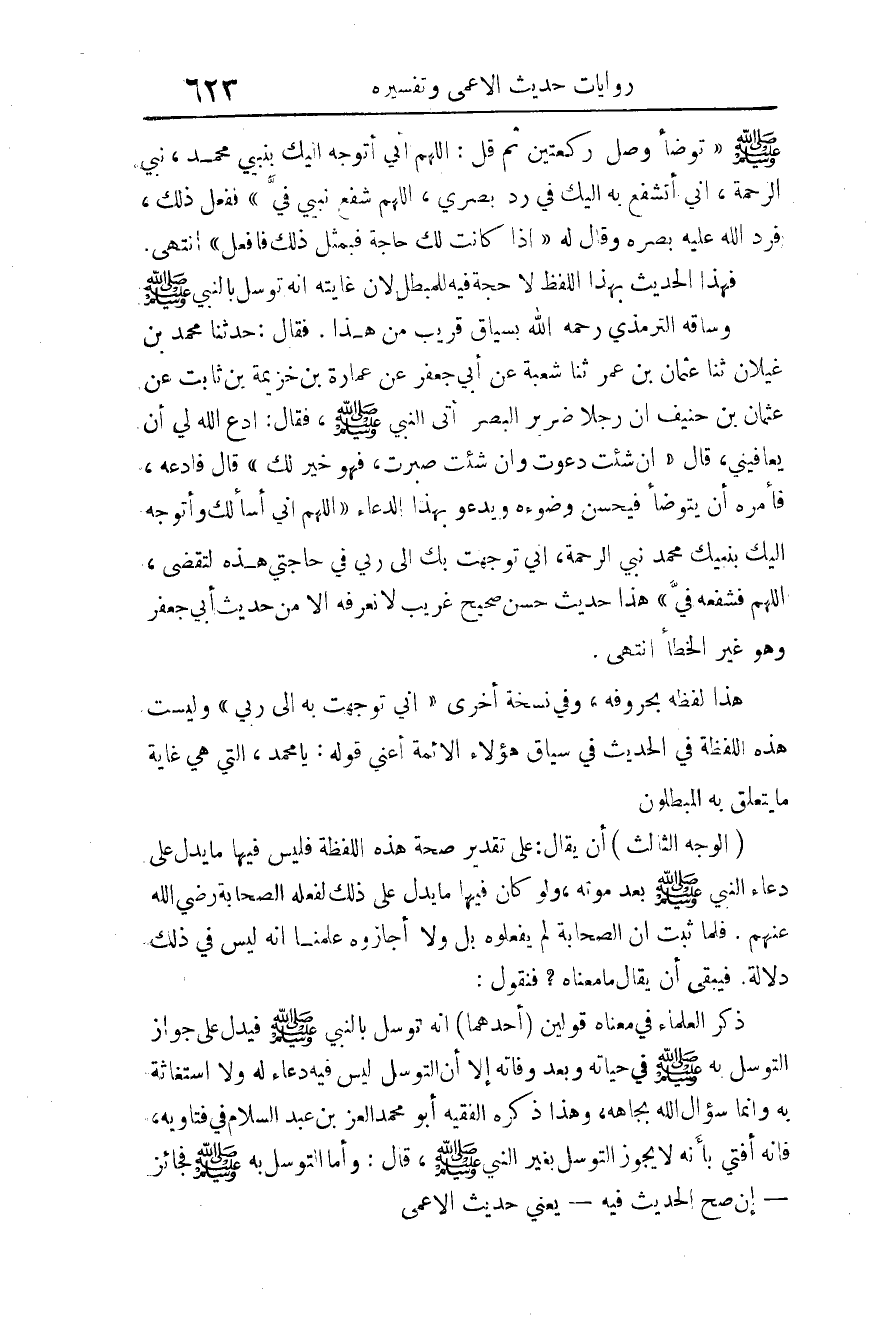 روايات حديث الاعمى وتفسيره ٦٢٣
ﷺ « توضأ وصل ركعتين ثم قل : اللهم اني أتوجه اليك بنبي محمـد ، نبي
الرحمة ، اني أتشفع به اليك في رد بصري ، اللهم شفع نبيي فيَّ » ففعل ذلك ،
فرد الله عليه بصره وقال له « اذا كانت لك حاجة فبمثل ذلك فافعل » انتهى.
فهذا الحديث بهذا اللفظ لا حجة فيه للمبطل لان غايته انه توسل بالنبي ﷺ
وساقه الترمذي رحمه الله بسياق قريب من هـذا . فقال : حدثنا محمد بن
غيلان ثنا عثمان بن عمر ثنا شعبة عن أبي جعفر عن عمارة بن خزيمة بن ثابت عن
عثمان بن حنيف ان رجلا ضرير البصر أتى النبي ﷺ ، فقال: ادع الله لي أن
يعافيني، قال « ان شئت دعوت وان شئت صبرت، فهو خير لك » قال فادعه ،
فأمره أن يتوضأ فيحسن وضوءه ويدعو بهذا الدعاء « اللهم اني أسألك وأتوجه
اليك بنبيك محمد نبي الرحمة، اني توجهت بك الى ربي في حاجتي هـذه لتقضى ،
اللهم فشفعه فيَّ » هذا حديث حسن صحيح غريب لا نعرفه الا من حديث أبي جعفر
وهو غير الخطأ انتهى .
هذا لفظه بحروفه ، وفي نسخة أخرى « اني توجهت به الى ربي » وليست
هذه اللفظة في الحديث في سياق هؤلاء الائمة أعني قوله : يا محمد ، التي هي غاية
ما يتعلق به المبطلون
( الوجه الثالث ) أن يقال: على تقدير صحة هذه اللفظة فليس فيها ما يدل على
دعاء النبي ﷺ بعد موته ، ولو كان فيها ما يدل على ذلك لفعله الصحابة رضي الله
عنهم . فلما ثبت ان الصحابة لم يفعلوه بل ولا أجازوه علمنـا انه ليس في ذلك
دلالة. فيبقى أن يقال ما معناه ؟ فنقول :
ذكر العلماء في معناه قولين (أحدهما) انه توسل بالنبي ﷺ فيدل على جواز
التوسل به ﷺ في حياته وبعد وفاته إلا أن التوسل ليس فيه دعاء له ولا استغاثة
به وانما سؤال الله بجاهه، وهذا ذكره الفقيه أبو محمد العز بن عبد السلام في فتاويه،
فانه أفتى بأنه لا يجوز التوسل بغير النبي ﷺ ، قال : وأما التوسل به ﷺ فجائز
— إن صح الحديث فيه — يعني حديث الاعمى